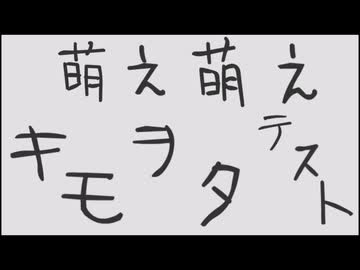 萌え萌え
キモヲタテスト